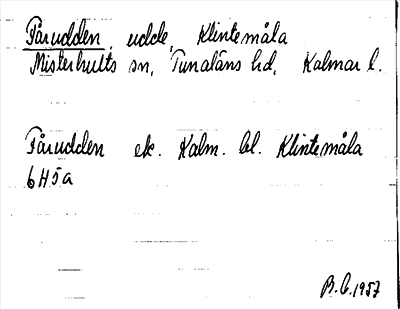 Fårudden, udde, Klintemåla
Misterhults sn, Tunaläns hd, Kalmar l.
Fårudden ek. Kalm. bl. Klintemåla
6H5a
B.C. 1957